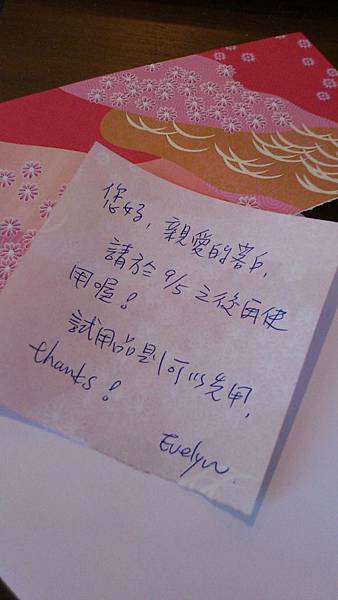 您好, 親愛的客戶,
請於 9/5 之後再使
用喔!
試用品是可以先用,
thanks!
Evelyn